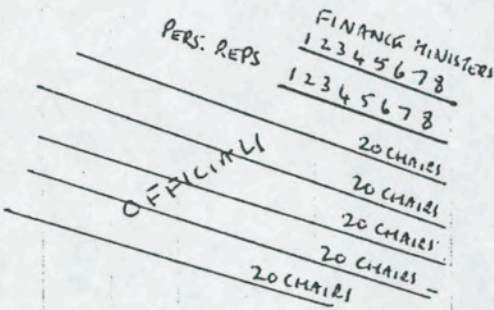 FINANCE MINISTERS
1 2 3 4 5 6 7 8
PERS. REPS
1 2 3 4 5 6 7 8
20 CHAIRS
20 CHAIRS
OFFICIALS
20 CHAIRS
20 CHAIRS
20 CHAIRS